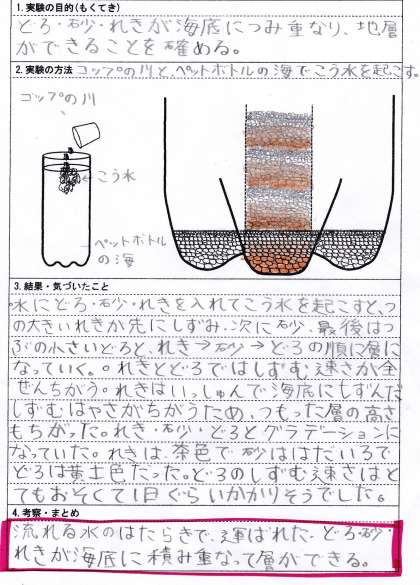 1.実験の目的(もくてき)
どろ・砂・れきが海底につみ重なり、地層
ができることを確める。
2.実験の方法 コップの川と、ペットボトルの海でこう水を起こす。
コップの川
こう水
ペットボトル
の海
3.結果・気づいたこと
水にどろ・砂・れきを入れてこう水を起こすと、つ
の大きいれきが先にしずみ、次に砂、最後はつ
ぶの小さいどろと、れき→砂→どろの順に層に
なっていく。れきとどろではしずむ速さが全
ぜんちがう。れきはいっしゅんで海底にしずんだ
しずむはやさがちがうため、つもった層の高さ
もちがった。れき・砂・どろとグラデーションに
なっていた。れきは、茶色で砂ははだいろで
どろは黄土色だった。どろのしずむ速さはと
てもおそくて1日ぐらいかかりそうでした。
4.考察・まとめ
流れる水のはたらきで、運ばれた、どろ・砂・
れきが海底に積み重なって層ができる。